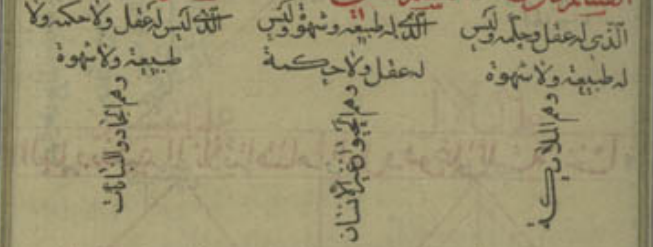 الذى له عقل وحكمة وليس
له طبيعة ولا شهوة
وهم الملائكة
الذى له طبيعة وشهوة وليس
له عقل ولا حكمة
وهم الحيوان غير الإنسان
الذى ليس له عقل ولا حكمة ولا
طبيعة ولا شهوة
وهم الجماد والنباتات